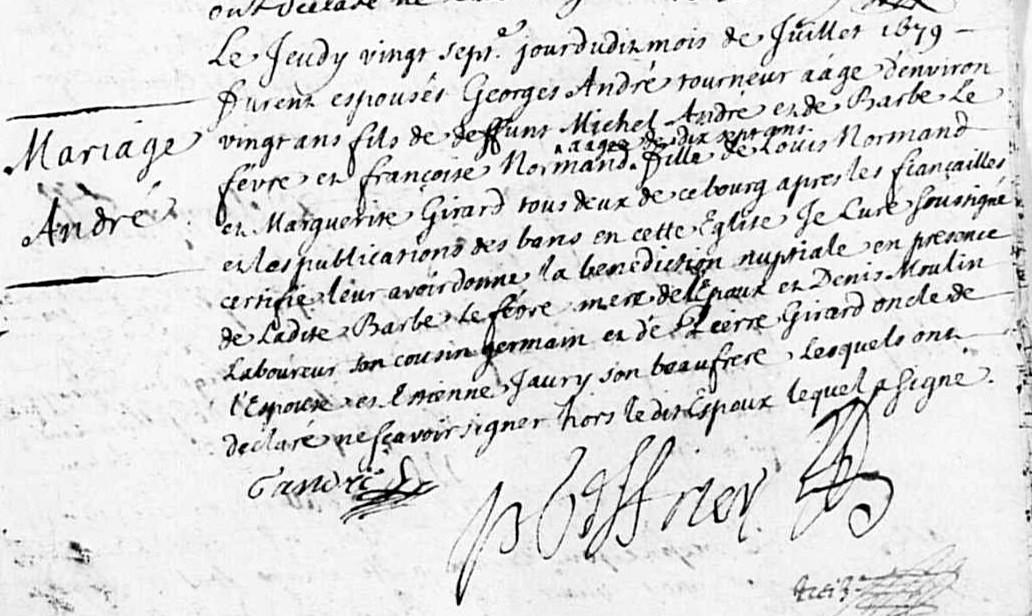 ont declaré ne
Le Jeudy vingt sept.e jour dudit mois de Juillet 1679
furent espousés Georges André tourneur aagé d'environ
vingt ans fils de deffunt Michel André et de Barbe Le
aagée de dix sept ans
fevre et françoise Normand fille de Louis Normand
et Marguerite Girard tous deux de ce bourg apres les fiançailles
et les publications des bans en cette Eglise Je Curé soussigné
certifie leur avoir donné la benediction nuptiale en presence
de Ladite Barbe le fevre mere de l'Epoux et Denis Moulin
Laboureur son cousin germain et de Pierre Girard oncle de
l'Epouse et Estienne Jaury son beaufrere Lesquels ont
declaré ne sçavoir signer hors ledit Espoux lequel a signé.
Mariage
André
G andré